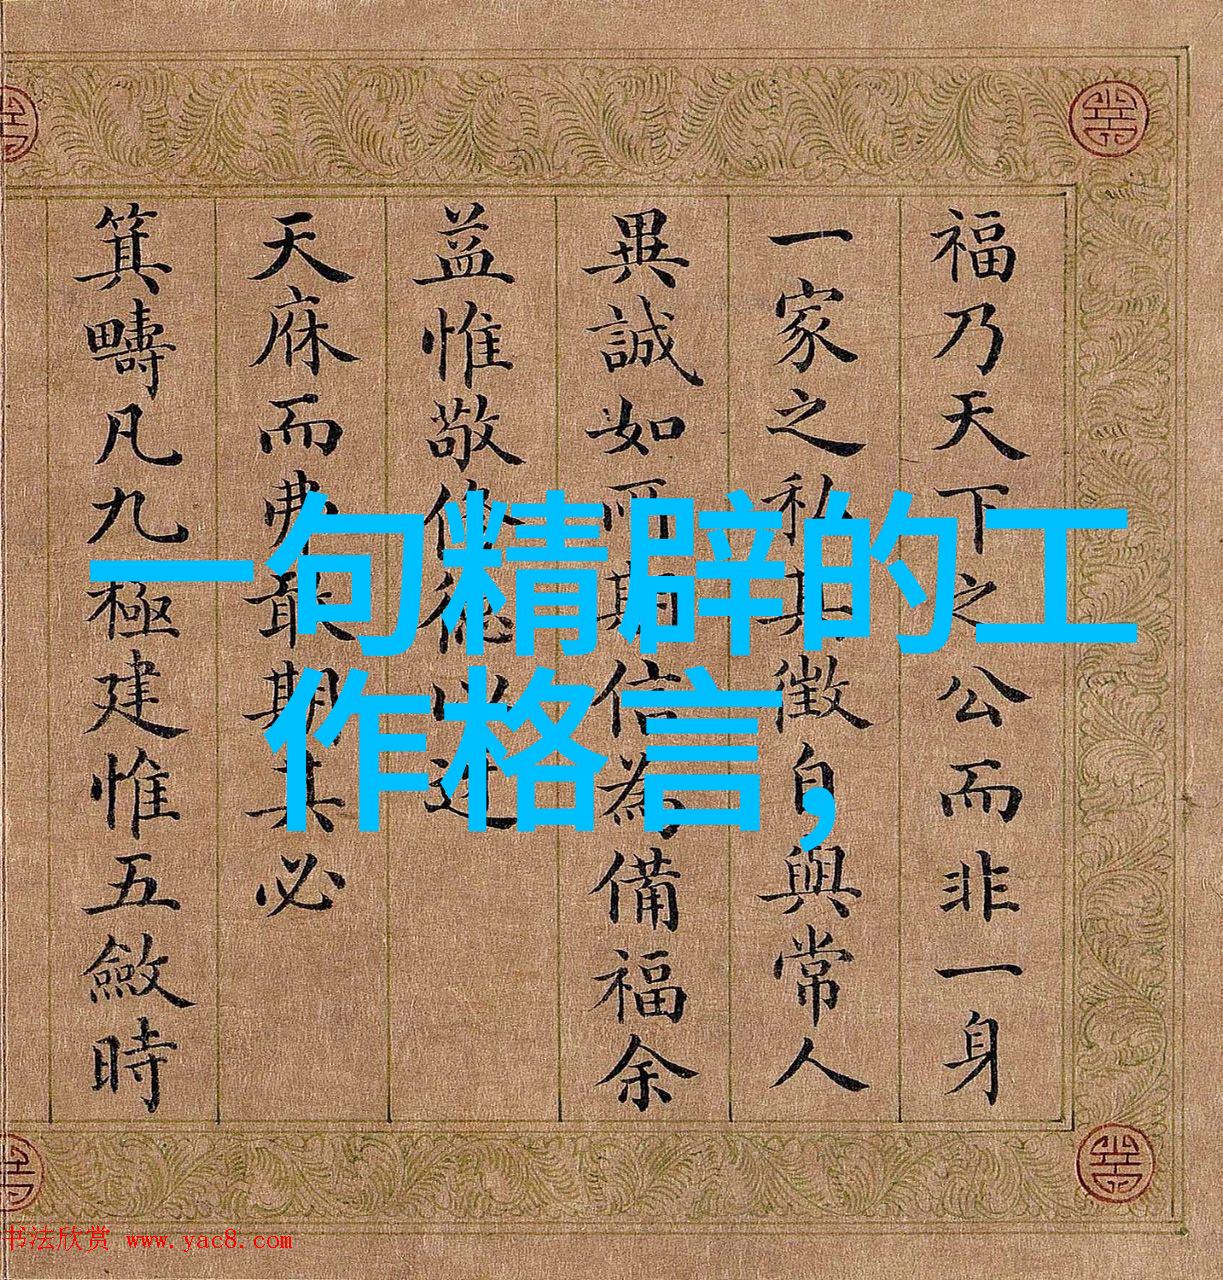 福乃天下之公而非一身
一家之私其徵自與常人
異誠如所期信為備福余
益惟敬修德以迓
天庥而弗敢期其必
箕疇凡九極建惟五斂時
一句精辟的工
作格言,
书法欣赏 www.yac8.com